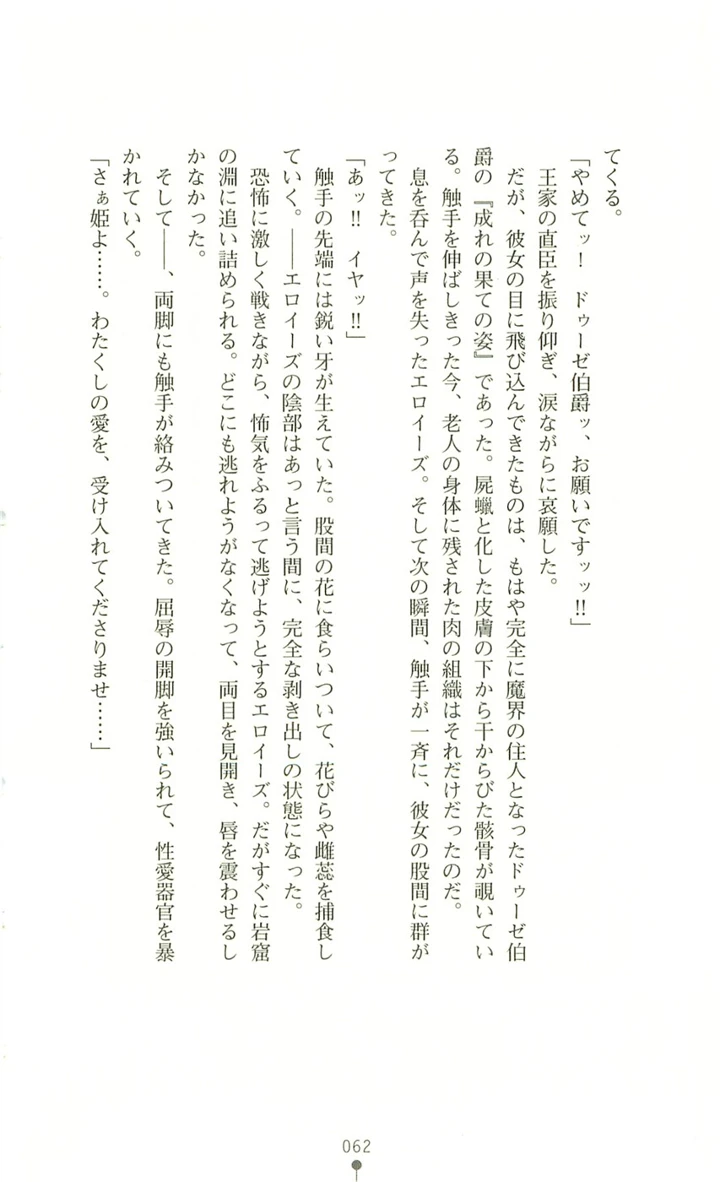 てくる。
「やめてッ！　ドゥーゼ伯爵ッ、お願いですッッ!!」
王家の直臣を振り仰ぎ、涙ながらに哀願した。
だが、彼女の目に飛び込んできたものは、もはや完全に魔界の住人となったドゥーゼ伯
爵の『成れの果ての姿』であった。屍蠟と化した皮膚の下から干からびた骸骨が覗いてい
る。触手を伸ばしきった今、老人の身体に残された肉の組織はそれだけだったのだ。
息を呑んで声を失ったエロイーズ。そして次の瞬間、触手が一斉に、彼女の股間に群が
ってきた。
「あッ!!　イヤッ!!」
触手の先端には鋭い牙が生えていた。股間の花に食らいついて、花びらや雌蕊を捕食し
ていく。――エロイーズの陰部はあっと言う間に、完全な剥き出しの状態になった。
恐怖に激しく戦きながら、怖気をふるって逃げようとするエロイーズ。だがすぐに岩窟
の淵に追い詰められる。どこにも逃れようがなくなって、両目を見開き、唇を震わせるし
かなかった。
そして――、両脚にも触手が絡みついてきた。屈辱の開脚を強いられて、性愛器官を暴
かれていく。
「さぁ姫よ……。わたくしの愛を、受け入れてくださりませ……」
062